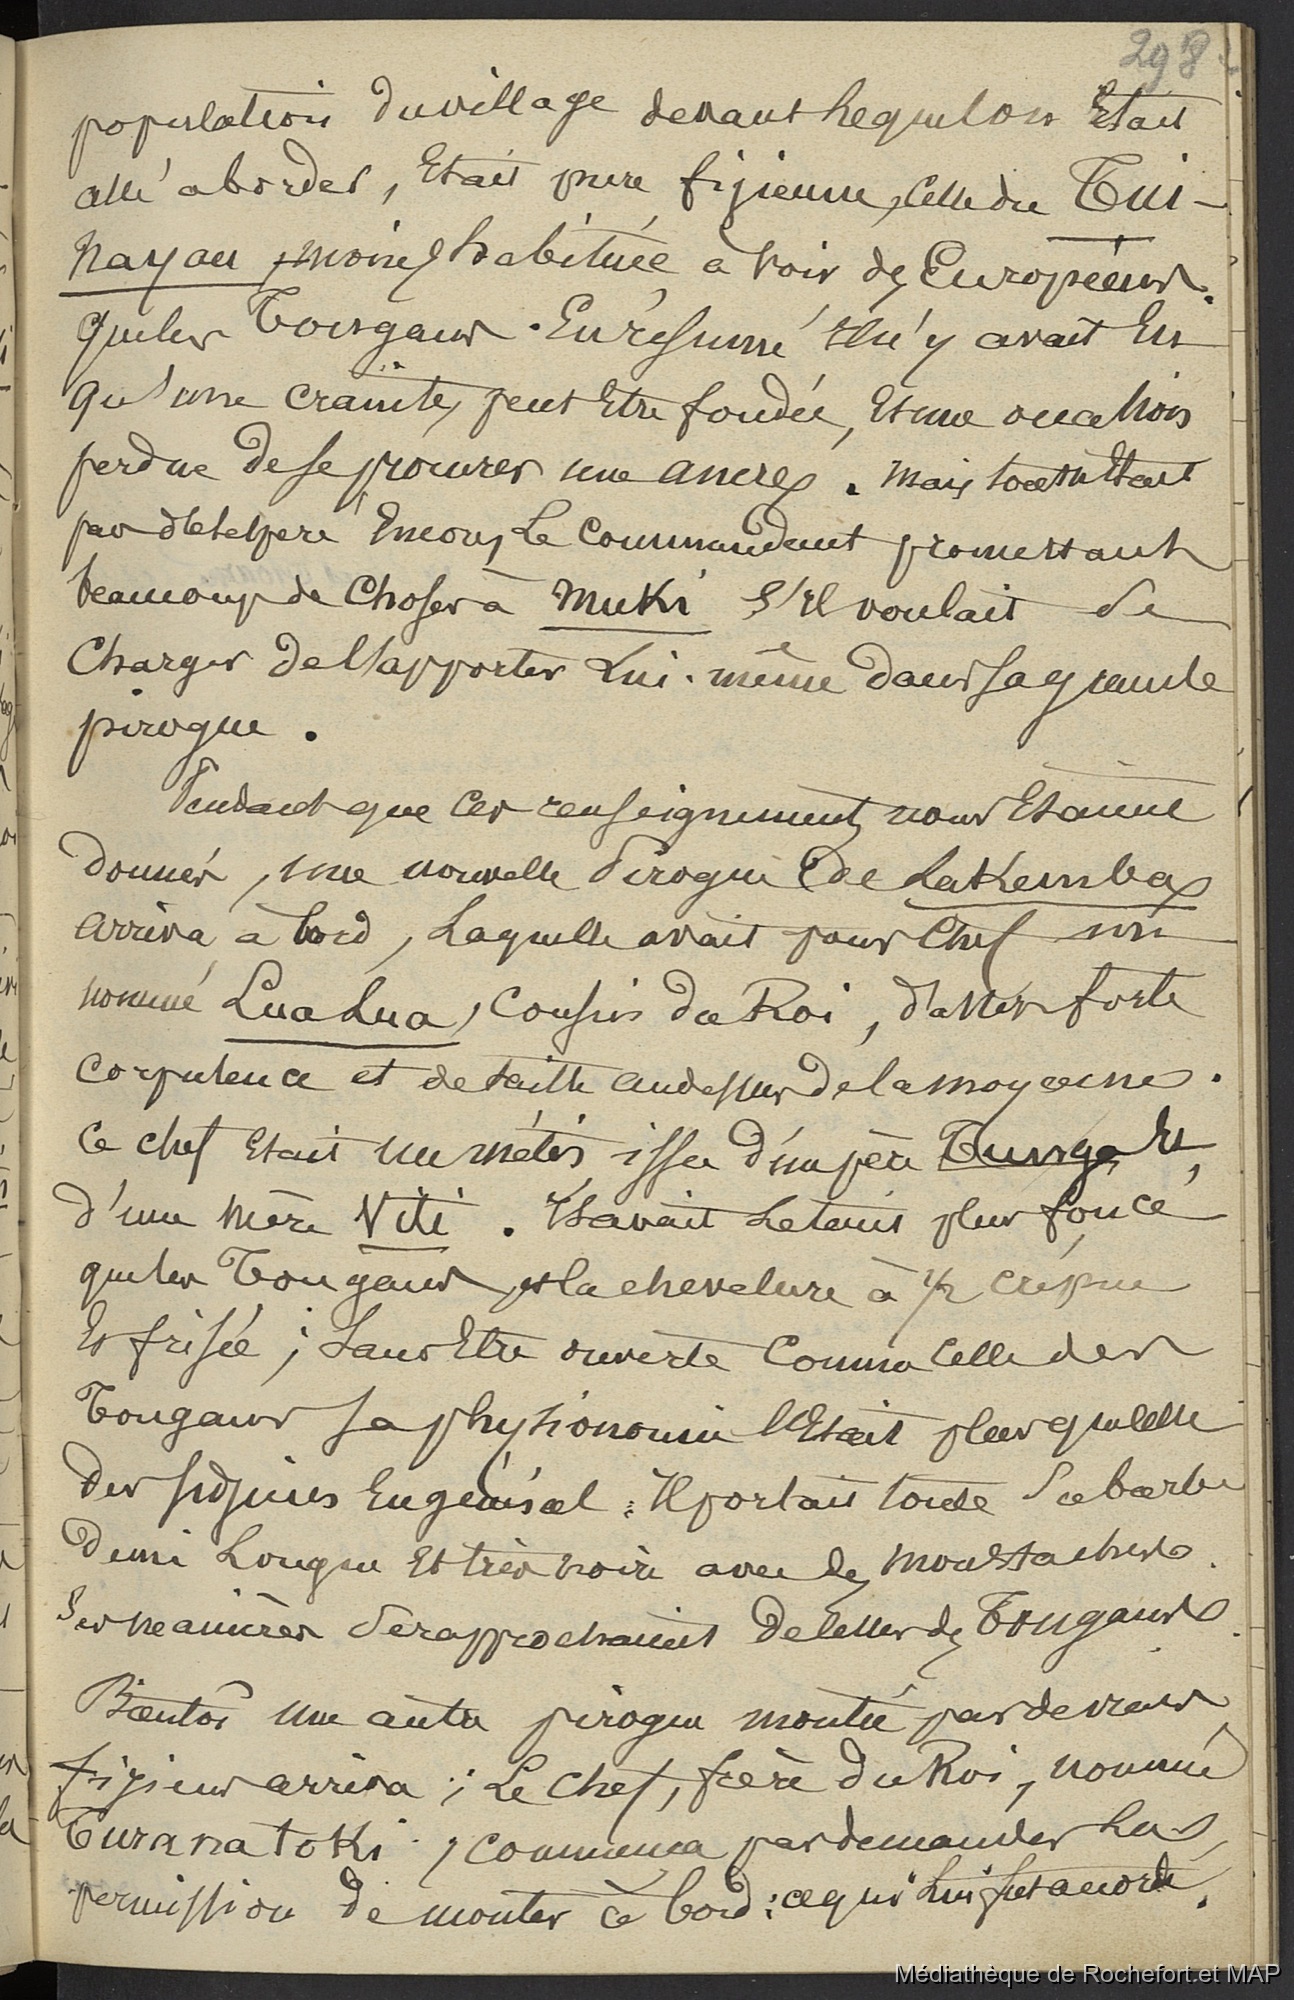 298
population du village devant lequel on Etait
allé aborder, Etait pure fijienne, celle du Tui-
Nayau, moins habituée a voir des Européens.
que les Tongans. En résumé Il n'y avait Eu
qu'une crainte, peut Etre fondée, Et une occasion
perdue de se procurer une ancre. Mais tout n'Etait
pas désespéré Encore, Le Commandant promettant
beaucoup de choses à Muki S'Il voulait se
Charger de l'apporter Lui-même dans sa grande
pirogue.
Pendant que ces renseignements nous Etaient
donnés, une nouvelle Pirogue (de Lakemba
arriva à bord, Laquelle avait pour Chef un
nommé Lualua, Cousin du Roi, d'assez forte
corpulence et de taille audessus de la moyenne.
Ce chef Etait un métis issu d'un père Tunga Et
d'une mère Viti. Il avait Le teint plus foncé
que les Tongans, et la chevelure à 1/2 crépue
Et frisée; Sans Etre ouverte Comme Celle des
Tongans sa physionomie l'Etait plus que celle
des fidjiens En général; Il portait toute Sa barbe
demi Longue Et très noire avec des moustaches.
Ses manières Se rapprochaient de Celles des Tongans.
Bientôt une autre pirogue montée par de vrais
fijiens arriva; Le Chef, frère du Roi, nommé
Turanatoki, commença par demander La
permission de monter à bord; ce qui Lui fut accordé.
Médiathèque de Rochefort et MAP